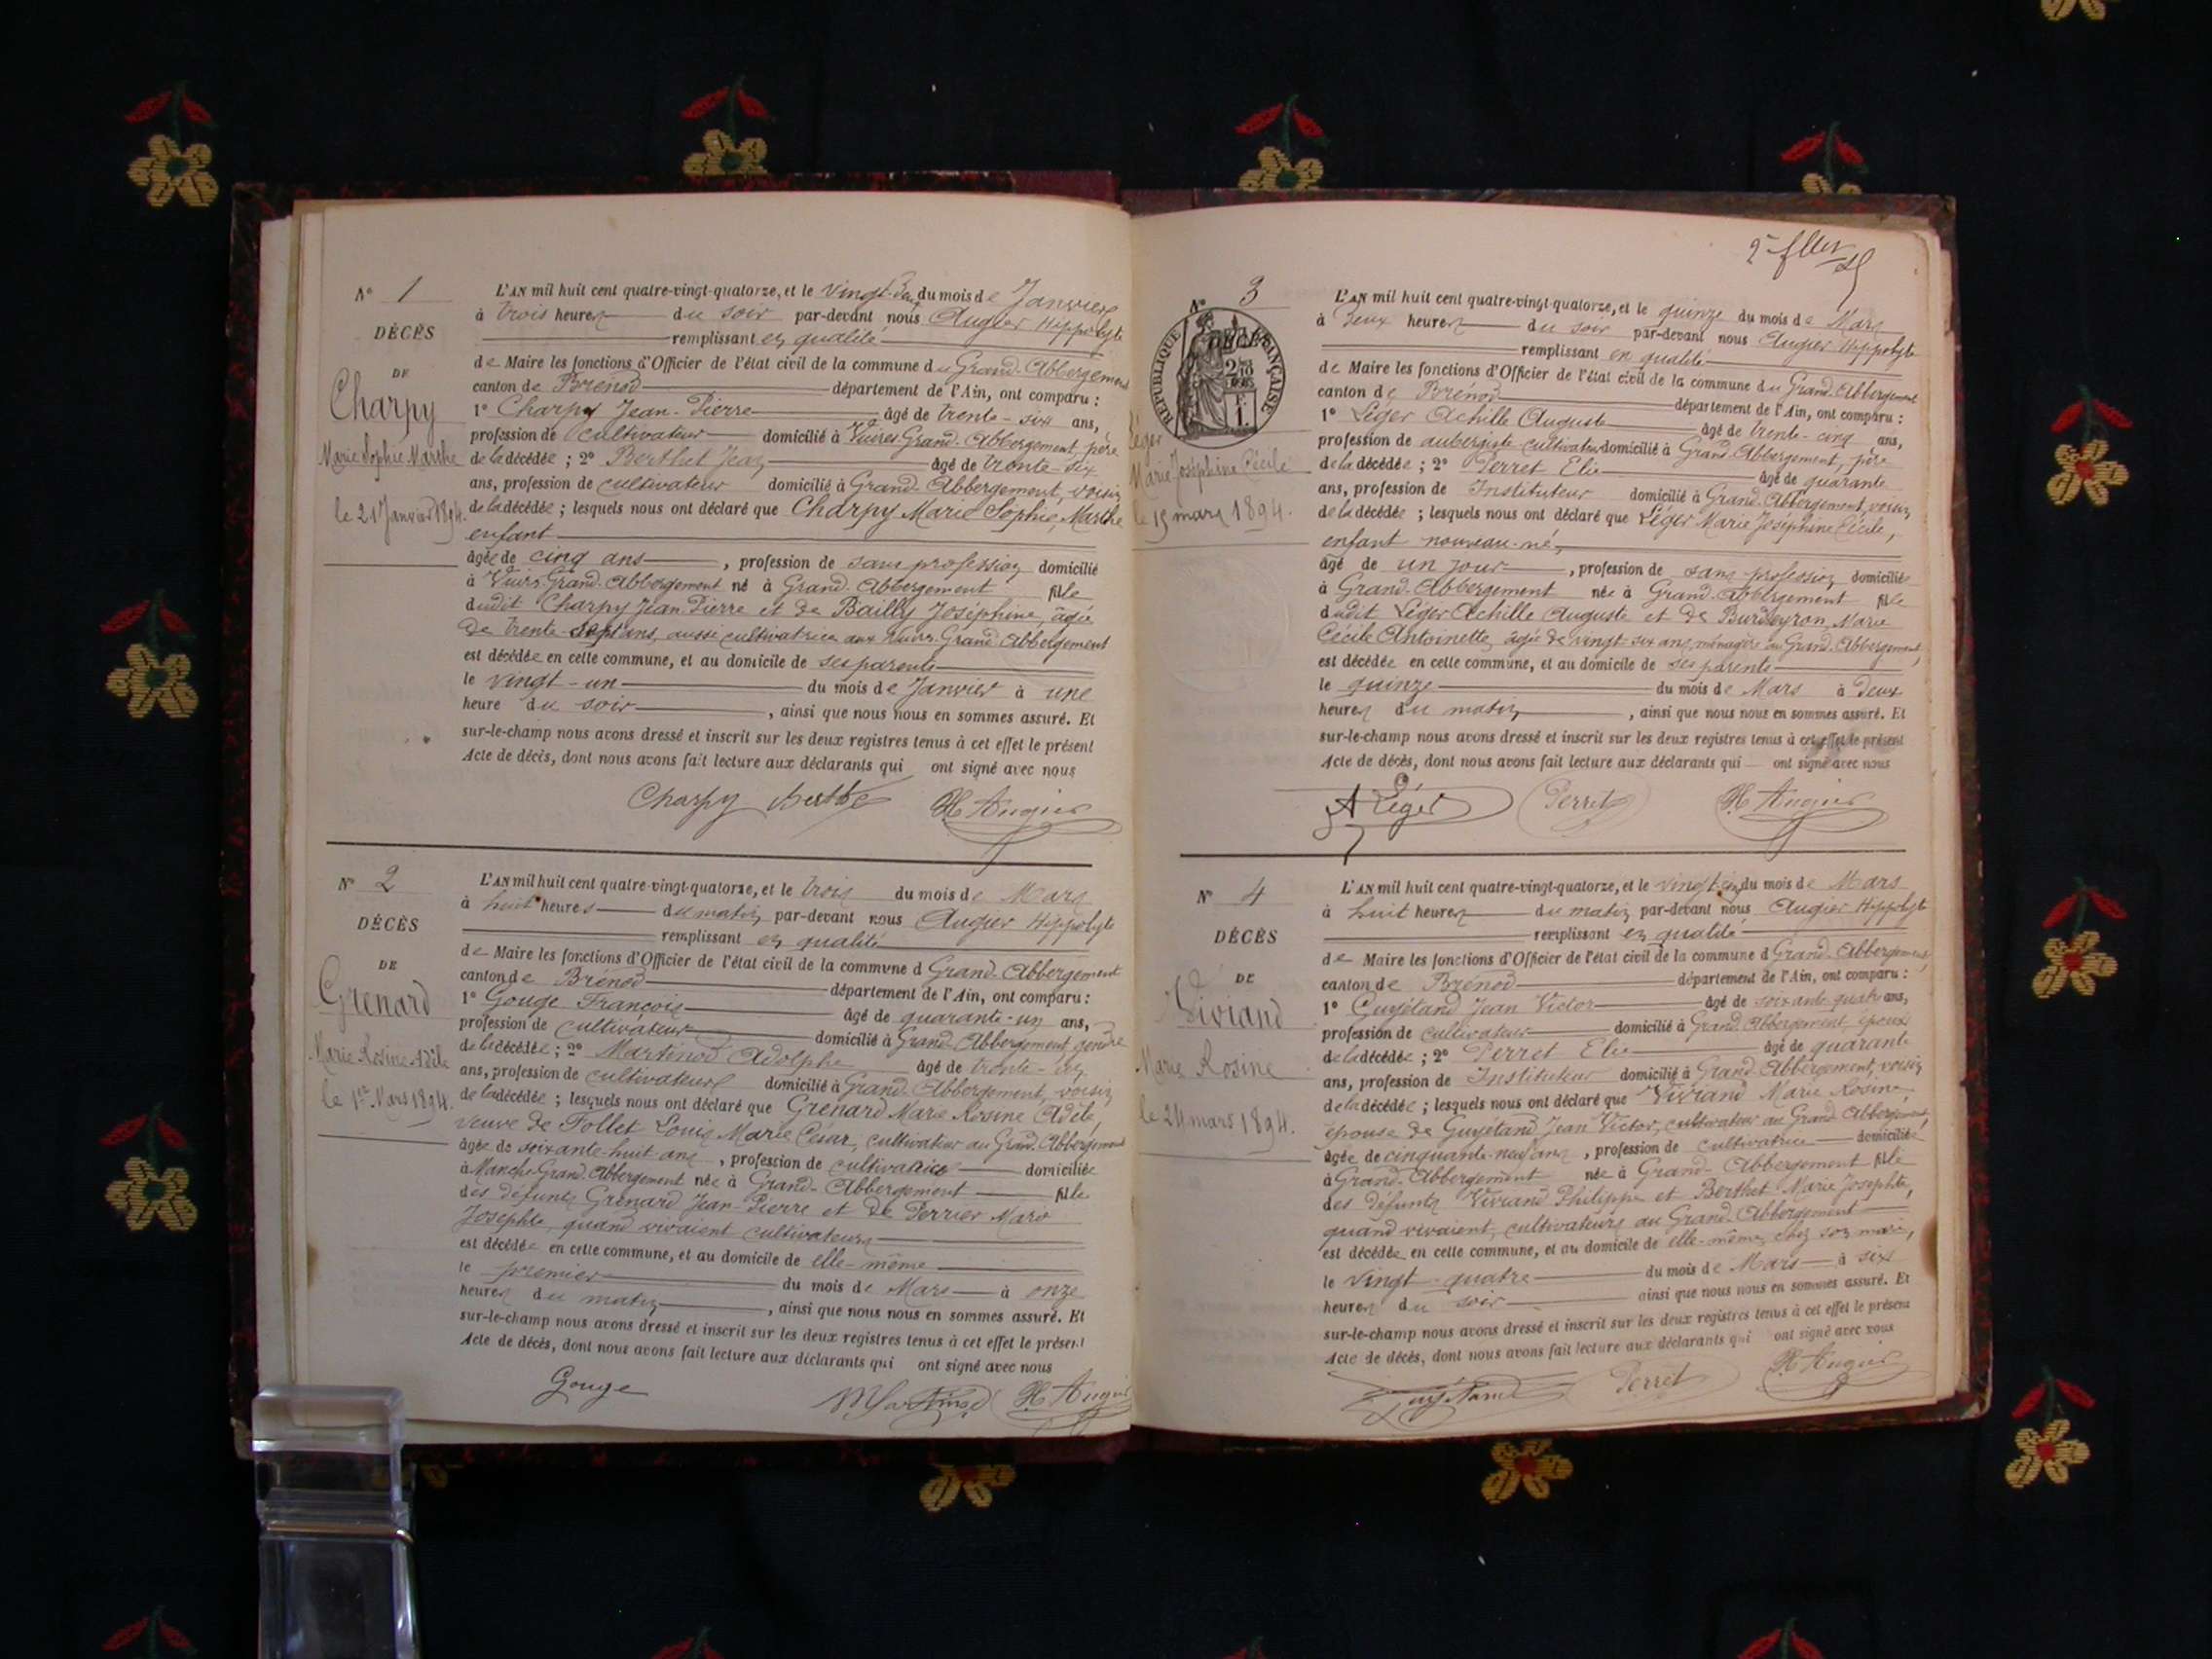 N° 1
DÉCÈS
DE
Charpy
Marie Sophie Marthe
le 21 Janvier 1894.
L'AN mil huit cent quatre-vingt-quatorze, et le vingt-deux du mois de Janvier
à trois heures du soir par-devant nous Augier Hippolyte
remplissant en qualité
de Maire les fonctions d'Officier de l'état civil de la commune du Grand-Abbergement
canton de Brénod département de l'Ain, ont comparu :
1° Charpy Jean-Pierre âgé de trente-six ans,
profession de cultivateur domicilié à Grand-Abbergement, père
de la décédée ; 2° Berthet Jean âgé de trente-six
ans, profession de cultivateur domicilié à Grand-Abbergement, voisin
de la décédée ; lesquels nous ont déclaré que Charpy Marie Sophie Marthe
enfant
âgée de cinq ans, profession de sans profession domicilié
à Grand-Abbergement né à Grand-Abbergement fille
dudit Charpy Jean-Pierre et de Bailly Joséphine, âgée
de trente-sept ans, aussi cultivatrice aux Grand-Abbergement
est décédée en cette commune, et au domicile de ses parents
le vingt-un du mois de Janvier à une
heure du soir, ainsi que nous nous en sommes assuré. Et
sur-le-champ nous avons dressé et inscrit sur les deux registres tenus à cet effet le présent
Acte de décès, dont nous avons fait lecture aux déclarants qui ont signé avec nous
Charpy H. Augier
N° 2
DÉCÈS
DE
Grenard
Marie Rosine Adèle
le 1er Mars 1894.
L'AN mil huit cent quatre-vingt-quatorze, et le trois du mois de Mars
à huit heures du matin par-devant nous Augier Hippolyte
remplissant en qualité
de Maire les fonctions d'Officier de l'état civil de la commune d Grand-Abbergement
canton de Brénod département de l'Ain, ont comparu :
1° Gouge François âgé de quarante-un ans,
profession de cultivateur domicilié à Grand Abbergement, gendre
de la décédée ; 2° Martinod Adolphe âgé de trente-
ans, profession de cultivateur domicilié à Grand-Abbergement, voisin
de la décédée ; lesquels nous ont déclaré que Grenard Marie Rosine Adèle,
veuve de Follet Louis Marie César, cultivateur au Grand-Abbergement
âgée de soixante-huit ans, profession de cultivatrice domiciliée
à Grand-Abbergement née à Grand-Abbergement fille
des défunts Grenard Jean-Pierre et de Perrier Marie
Josephte, quand vivaient cultivateurs
est décédée en cette commune, et au domicile de elle-même
le premier du mois de Mars à onze
heures du matin, ainsi que nous nous en sommes assuré. Et
sur-le-champ nous avons dressé et inscrit sur les deux registres tenus à cet effet le présent
Acte de décès, dont nous avons fait lecture aux déclarants qui ont signé avec nous
Gouge Martinod H. Augier
N° 3
DÉCÈS
RÉPUBLIQUE FRANÇAISE
Léger
Marie Joséphine Cécile
le 15 mars 1894.
L'AN mil huit cent quatre-vingt-quatorze, et le quinze du mois de Mars
à deux heures du soir par-devant nous Augier Hippolyte
remplissant en qualité
de Maire les fonctions d'Officier de l'état civil de la commune du Grand-Abbergement
canton de Brénod département de l'Ain, ont comparu :
1° Léger Achille Auguste âgé de trente-cinq ans,
profession de aubergiste-cultivateur domicilié à Grand-Abbergement, père
de la décédée ; 2° Perret Elie âgé de quarante
ans, profession de Instituteur domicilié à Grand-Abbergement, voisin
de la décédée ; lesquels nous ont déclaré que Léger Marie Joséphine Cécile,
enfant nouveau-né,
âgé de un jour, profession de sans profession domiciliée
à Grand-Abbergement née à Grand-Abbergement fille
dudit Léger Achille Auguste et de Burdeyron, Marie
Cécile Antoinette, âgée de vingt-six ans, ménagère au Grand-Abbergement,
est décédée en cette commune, et au domicile de ses parents
le quinze du mois de Mars à deux
heures du matin, ainsi que nous nous en sommes assuré. Et
sur-le-champ nous avons dressé et inscrit sur les deux registres tenus à cet effet le présent
Acte de décès, dont nous avons fait lecture aux déclarants qui ont signé avec nous
A Léger Perret H. Augier
N° 4
DÉCÈS
DE
Viviand
Marie Rosine
le 24 mars 1894.
L'AN mil huit cent quatre-vingt-quatorze, et le vingt-cinq du mois de Mars
à huit heures du matin par-devant nous Augier Hippolyte
remplissant en qualité
de Maire les fonctions d'Officier de l'état civil de la commune d Grand-Abbergement
canton de Brénod département de l'Ain, ont comparu :
1° Guyétand Jean Victor âgé de soixante-quatre ans,
profession de cultivateur domicilié à Grand-Abbergement, époux
de la décédée ; 2° Perret Elie âgé de quarante
ans, profession de Instituteur domicilié à Grand-Abbergement, voisin
de la décédée ; lesquels nous ont déclaré que Viviand Marie Rosine,
épouse de Guyétand Jean Victor, cultivateur au Grand Abbergement,
âgée de cinquante-neuf ans, profession de cultivatrice domiciliée
à Grand-Abbergement née à Grand-Abbergement fille
des défunts Viviand Philippe et Berthet Marie Josephte,
quand vivaient, cultivateurs au Grand-Abbergement
est décédée en cette commune, et au domicile de elle-même, chez son mari,
le vingt-quatre du mois de Mars à six
heures du soir ainsi que nous nous en sommes assuré. Et
sur-le-champ nous avons dressé et inscrit sur les deux registres tenus à cet effet le présent
Acte de décès, dont nous avons fait lecture aux déclarants qui ont signé avec nous
Guyétand Perret H. Augier